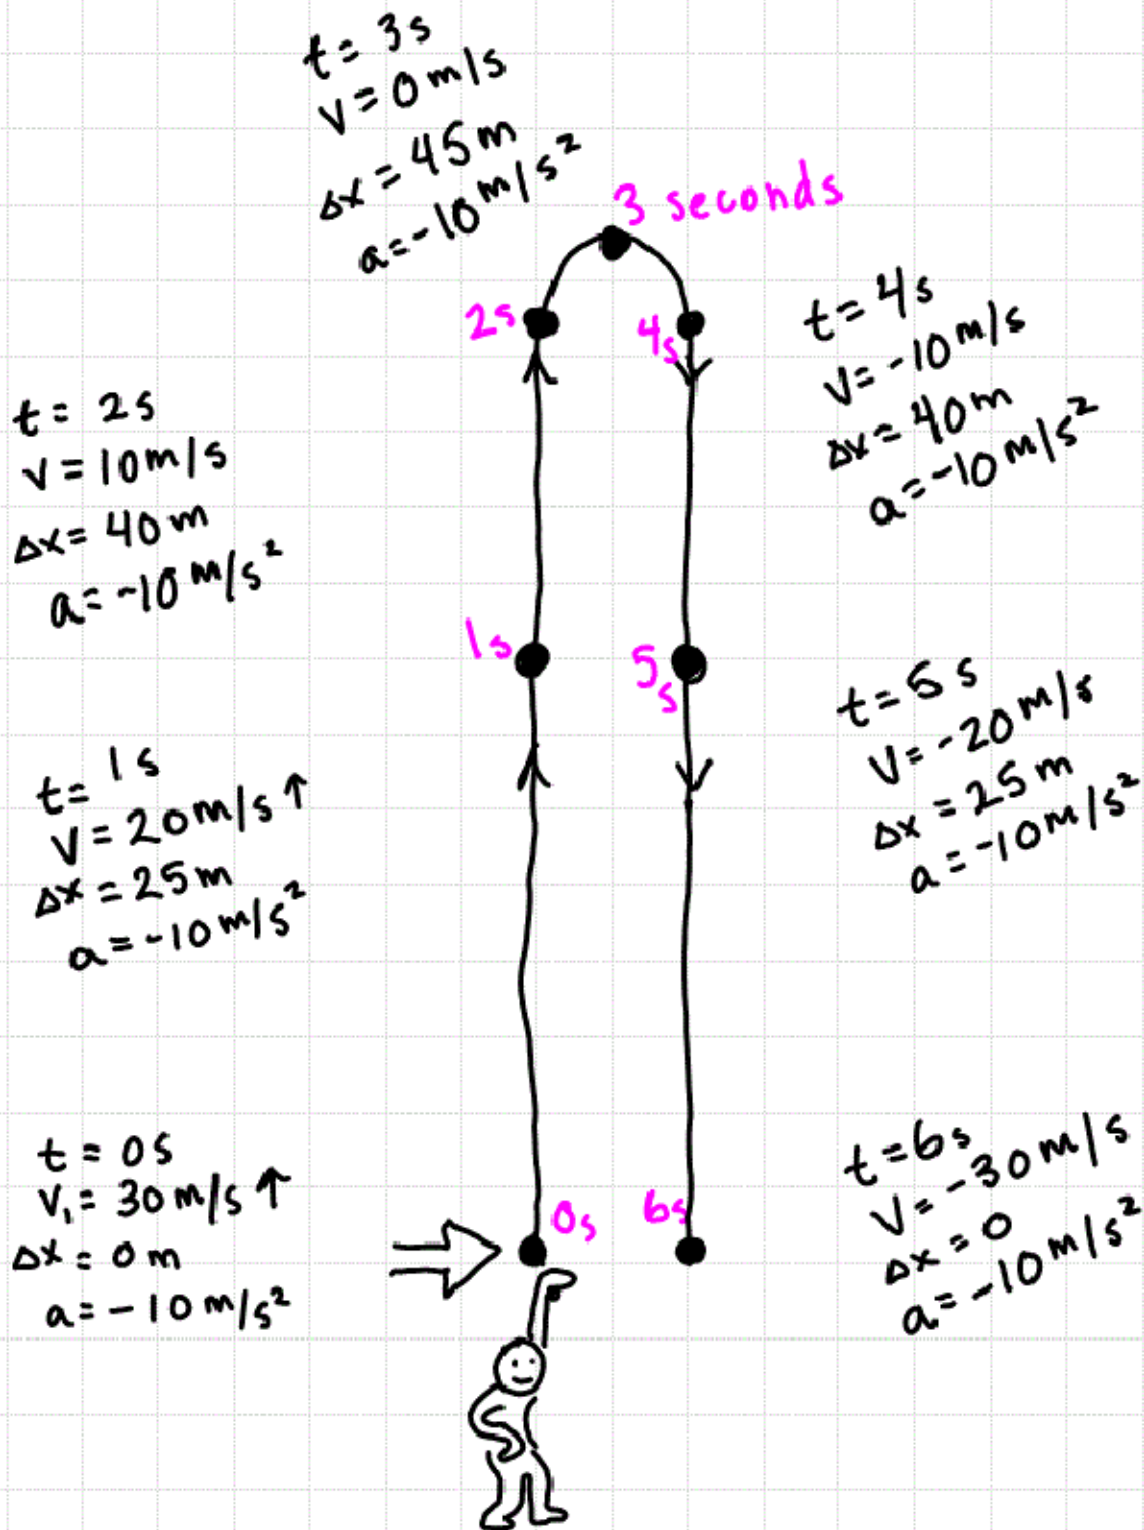 t = 3s
v = 0 m/s
Δx = 45 m
a = -10 m/s²
3 seconds
2s
4s
t = 4s
v = -10 m/s
Δx = 40 m
a = -10 m/s²
t = 2s
v = 10 m/s
Δx = 40 m
a = -10 m/s²
1s
5s
t = 5s
v = -20 m/s
Δx = 25 m
a = -10 m/s²
t = 1s
v = 20 m/s ↑
Δx = 25 m
a = -10 m/s²
t = 0s
v₁ = 30 m/s ↑
Δx = 0 m
a = -10 m/s²
0s
6s
t = 6s
v = -30 m/s
Δx = 0
a = -10 m/s²